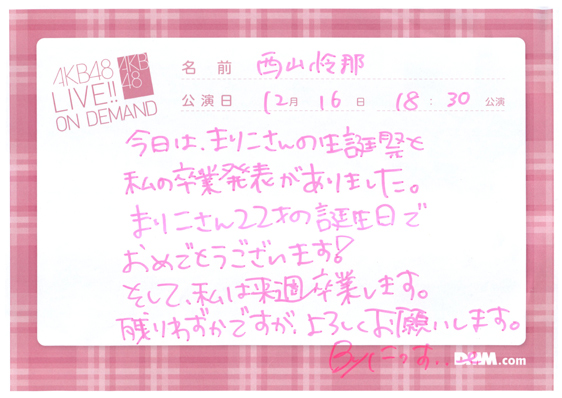 AKB48
LIVE!!
ON DEMAND
AKB
48
名前 西山怜那
公演日 12月 16日 18:30 公演
今日は、まりこさんの生誕祭と
私の卒業発表がありました。
まりこさん22才の誕生日で
おめでとうございます!
そして、私は来週卒業します。
残りわずかですが、よろしくお願いします。
By にっす..
DMM.com